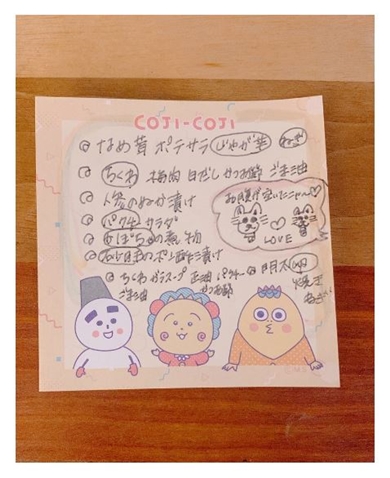 COJI-COJI
なめ茸 ポテサラ じゃが芋 ねぎ
ちくわ 梅肉 白だし かつお節 ごま油
人参のぬか漬け
パクチーサラダ
かぼちゃの煮物
のポン酢漬け
ちくわ ガラスープ 正油 バター
ごま油 かつお節
明太
焼
お腹が空いたニャ〜♡
LOVE